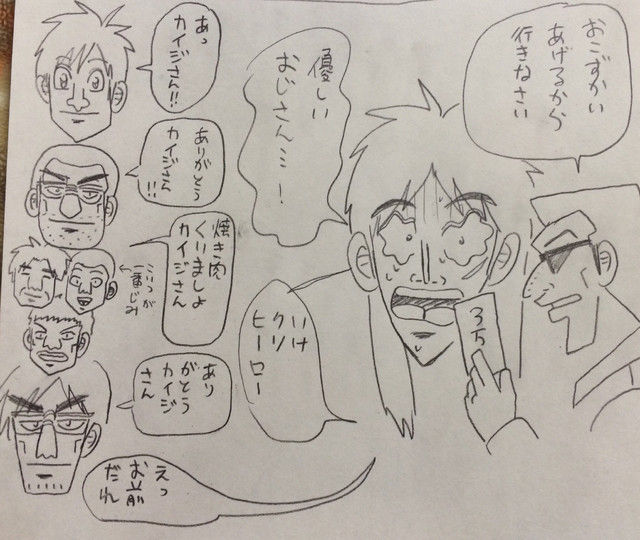 おこずかい
あげるから
行きなさい
優しい
おじさん…！
3万
いけ
クソ
ヒーロー
あっ
カイジさん!!
ありがとう
カイジさん
!!
焼き肉
くりましょ
カイジさん
こいつが
一番じみ
あり
がとう
カイジ
さん
えっ
お前
だれ